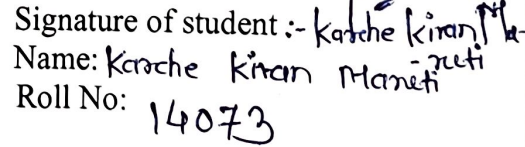 Signature of student :- Katche Kiran Ma-
-neti
Name: Karche Kiran Maneti
Roll No: 14073